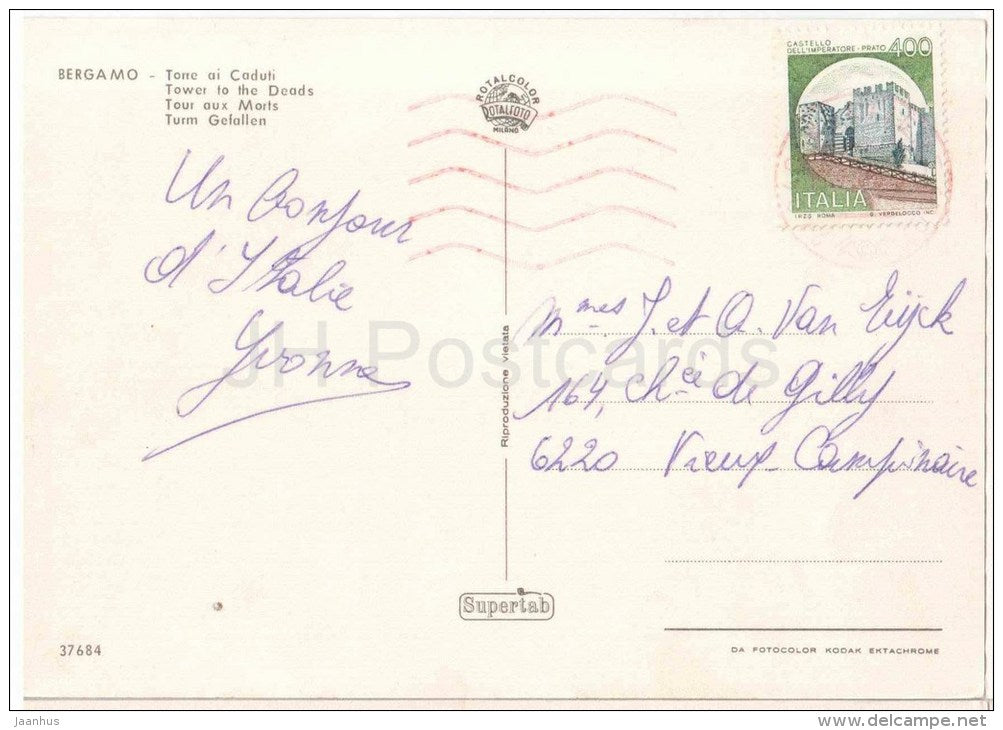 BERGAMO - Torre ai Caduti
Tower to the Deads
Tour aux Morts
Turm Gefallen
ROTALCOLOR
ROTALFOTO
MILANO
CASTELLO
DELL'IMPERATORE - PRATO 400
ITALIA
I.P.Z.S. ROMA G. VERDELOCCO INC.
Un Bonjour
d'Italie
Yvonne
Riproduzione vietata
Mmes J. et A. Van Eijck
164, Chée de Gilly
6220 Vieux-Campinaire
JH Postcards
Supertab
37684
DA FOTOCOLOR KODAK EKTACHROME
jaanhus
www.delcampe.net